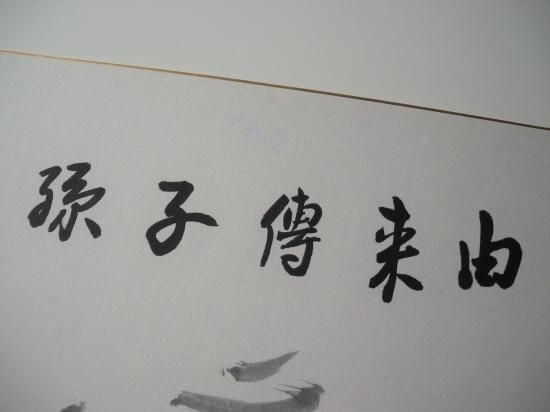 孫子傳来由